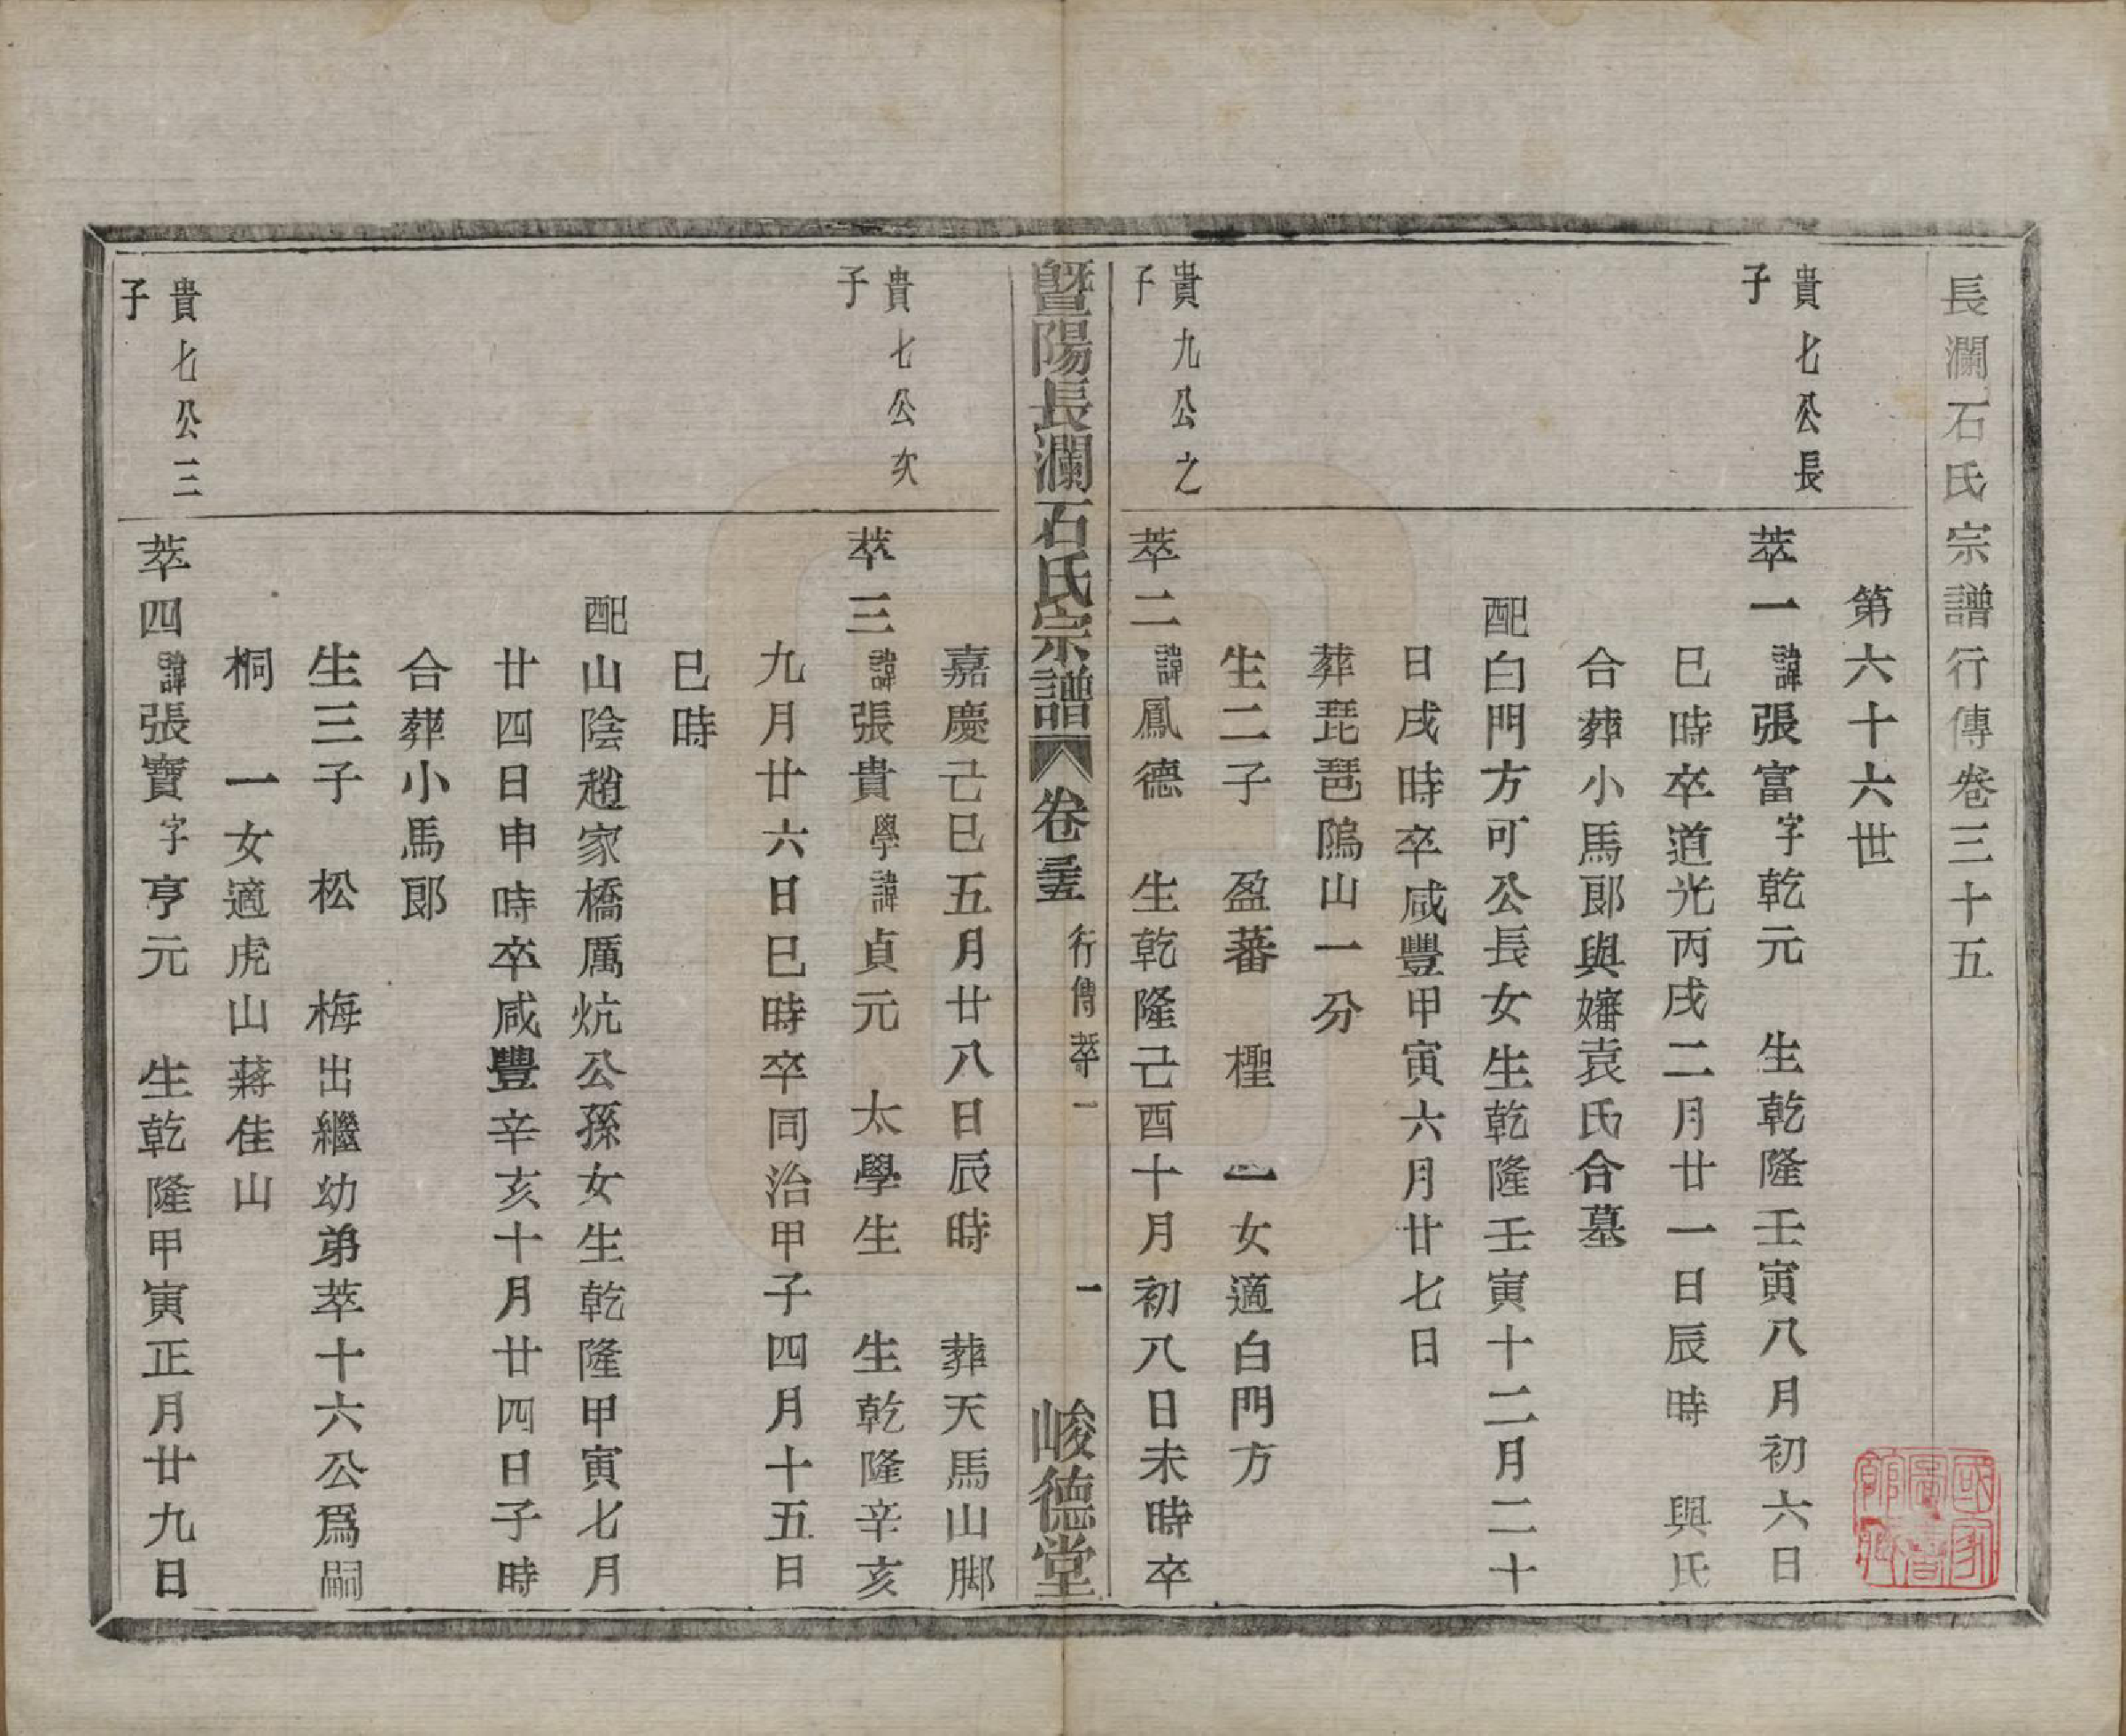 長瀾石氏宗譜行傳卷三十五
第六十六世
貴七公長
子
萃一諱張富字乾元　生乾隆壬寅八月初六日
巳時卒道光丙戌二月廿一日辰時　與氏
合葬小馬郎與嬸袁氏合墓
配白門方可公長女生乾隆壬寅十二月二十
日戌時卒咸豐甲寅六月廿七日
葬琵琶隝山一分
生二子　盈蕃　檉　一女適白門方
貴九公之
子
萃二諱鳳德　生乾隆己酉十月初八日未時卒
暨陽長瀾石氏宗譜 卷三十五 行傳萃一 一 峻德堂
嘉慶己巳五月廿八日辰時　葬天馬山腳
貴七公次
子
萃三諱張貴學諱貞元　太學生　生乾隆辛亥
九月廿六日巳時卒同治甲子四月十五日
巳時
配山陰趙家橋厲炕公孫女生乾隆甲寅七月
廿四日申時卒咸豐辛亥十月廿四日子時
合葬小馬郎
生三子　松　梅出繼幼弟萃十六公爲嗣
桐　一女適虎山蔣佳山
貴七公三
子
萃四諱張寶字亨元　生乾隆甲寅正月廿九日
國家圖書館藏